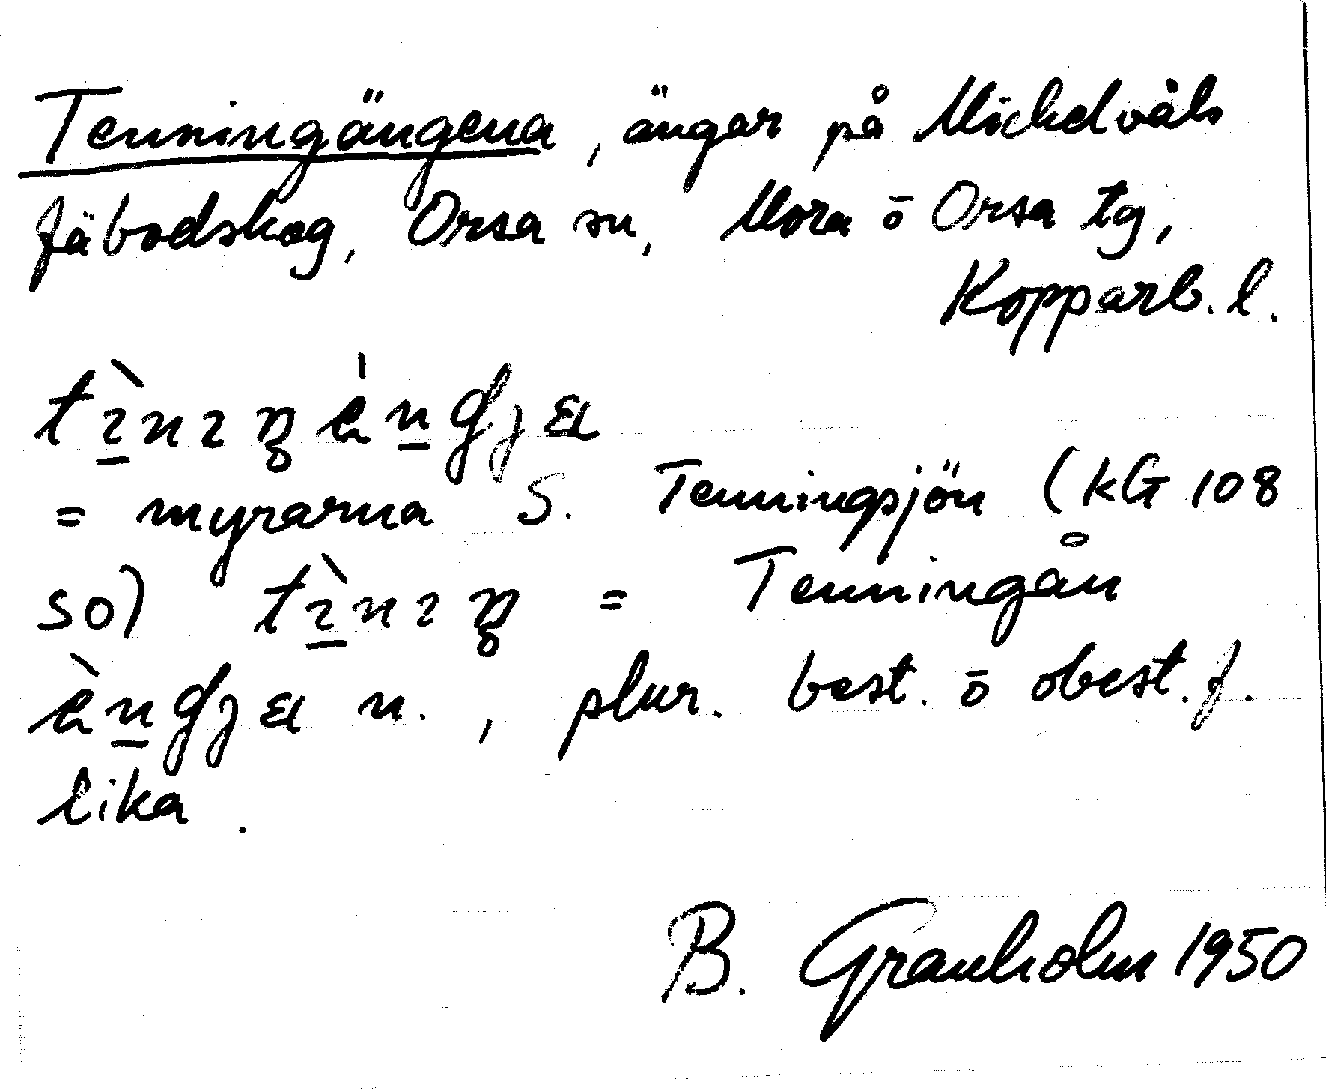 Tenningängena, ängar på Mickelvåls
fäbodskog, Orsa sn, Mora o Orsa tg,
Kopparb. l.
= myrarna S. Tenningsjön (KG 108
SO) = Tenningån
n., plur. best. o obest. f.
lika.
B. Granholm 1950